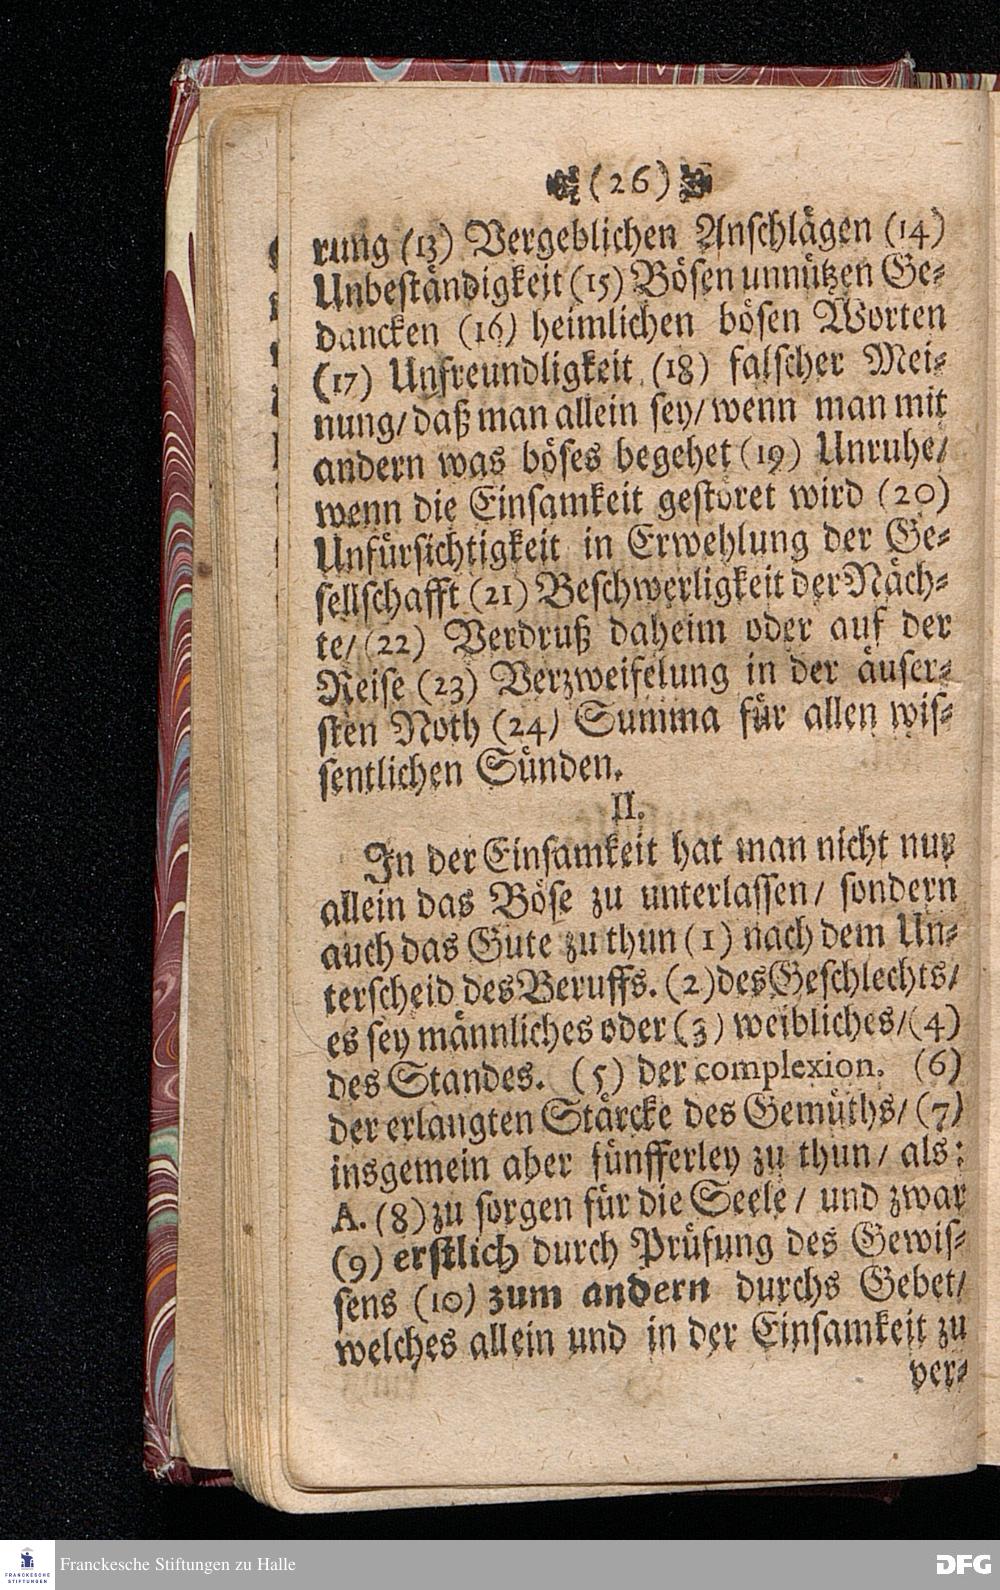 (26)
rung (13) Vergeblichen Anschlägen (14)
Unbeständigkeit (15) Bösen unnützen Ge-
dancken (16) heimlichen bösen Worten
(17) Unfreundligkeit (18) falscher Mei-
nung/ daß man allein sey/ wenn man mit
andern was böses begehet (19) Unruhe/
wenn die Einsamkeit gestöret wird (20)
Unfürsichtigkeit in Erwehlung der Ge-
sellschafft (21) Beschwerligkeit der Näch-
te/ (22) Verdruß daheim oder auf der
Reise (23) Verzweifelung in der äuser-
sten Noth (24) Summa für allen wis-
sentlichen Sünden.
II.
In der Einsamkeit hat man nicht nur
allein das Böse zu unterlassen/ sondern
auch das Gute zu thun (1) nach dem Un-
terscheid des Beruffs. (2) des Geschlechts/
es sey männliches oder (3) weibliches/ (4)
des Standes. (5) der complexion. (6)
der erlangten Stärcke des Gemüths/ (7)
insgemein aber fünfferley zu thun/ als:
A. (8) zu sorgen für die Seele/ und zwar
(9) erstlich durch Prüfung des Gewis-
sens (10) zum andern durchs Gebet/
welches allein und in der Einsamkeit zu
ver-
FRANCKESCHE
STIFTUNGEN
Franckesche Stiftungen zu Halle
DFG